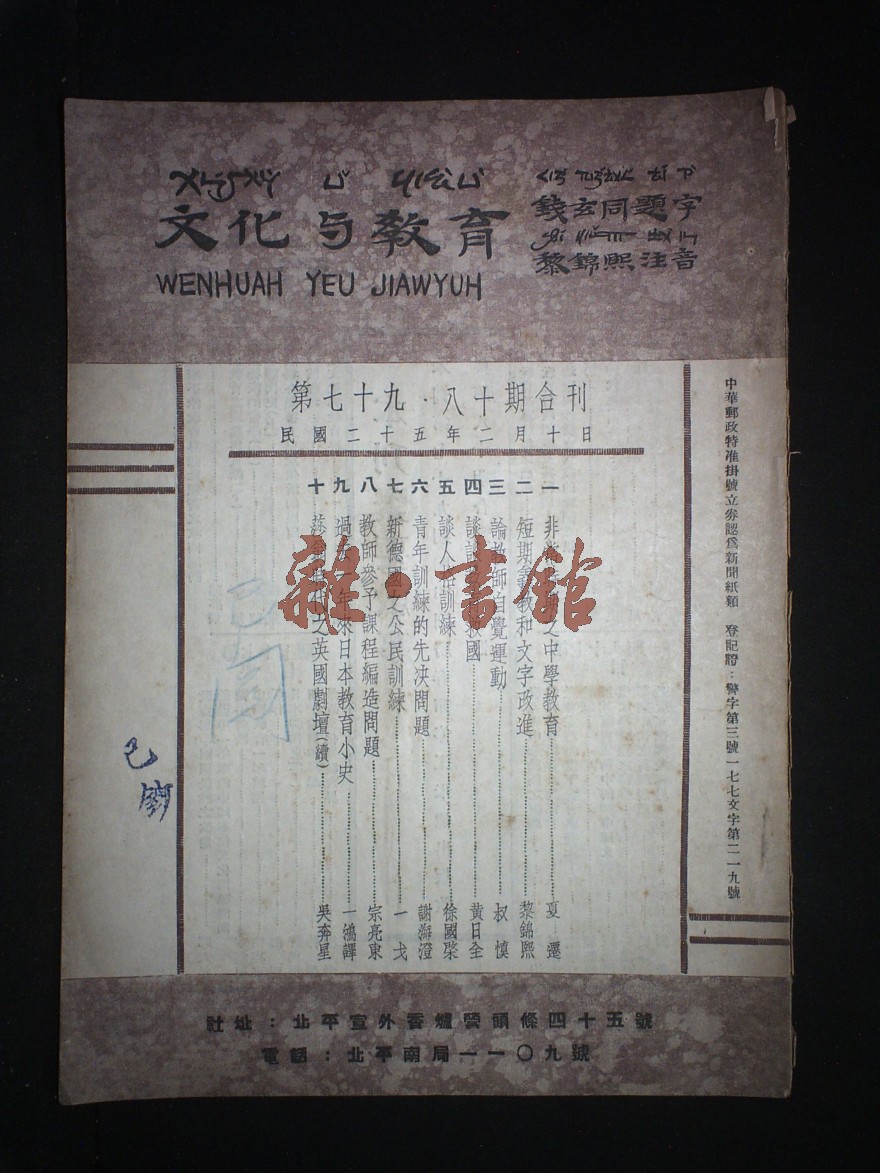 文化与教育
WENHUAH YEU JIAWYUH
錢玄同題字
黎錦熙注音
第七十九·八十期合刊
民國二十五年二月十日
一二三四五六七八九十
非常時期之中學教育 夏 遷
短期義教和文字改進 黎錦熙
論教師自覺運動 叔 慎
談 救國 黃日全
談人格訓練 徐國棨
青年訓練的先决問題 謝海澄
新德國之公民訓練 一 戈
教師參予課程編造問題 宗亮東
過去一年來日本教育小史 一鴻譯
莎翁時代之英國劇壇(續) 吳奔星
中華郵政特准掛號立券認為新聞紙類 登記證:警字第三號一七七文字第二一九號
社址:北平宣外香爐營頭條四十五號
電話:北平南局一一〇九號
雜·書館